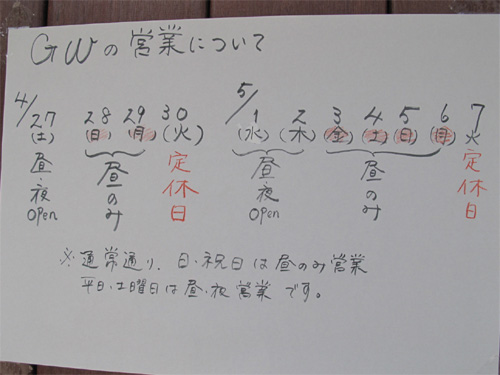 GWの営業について
4/27 28 29 30 5/1 2 3 4 5 6 7
(土) (日) (月) (火) (水) (木) (金) (土) (日) (月) 火
昼・夜 OPEN 昼のみ 定休日 昼夜 OPEN 昼のみ 定休日
※通常通り、日・祝日は昼のみ営業
平日・土曜日は昼・夜営業です。